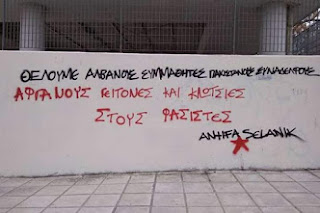 ΘΕΛΟΥΜΕ ΑΛΒΑΝΟΥΣ ΣΥΜΜΑΘΗΤΕΣ ΠΑΚΙΣΤΑΝΟΥΣ ΣΥΝΑΔΕΛΦΟΥΣ
ΑΦΓΑΝΟΥΣ ΓΕΙΤΟΝΕΣ ΚΑΙ ΚΛΩΤΣΙΕΣ
ΣΤΟΥΣ ΦΑΣΙΣΤΕΣ
ANTIFA SELANIK